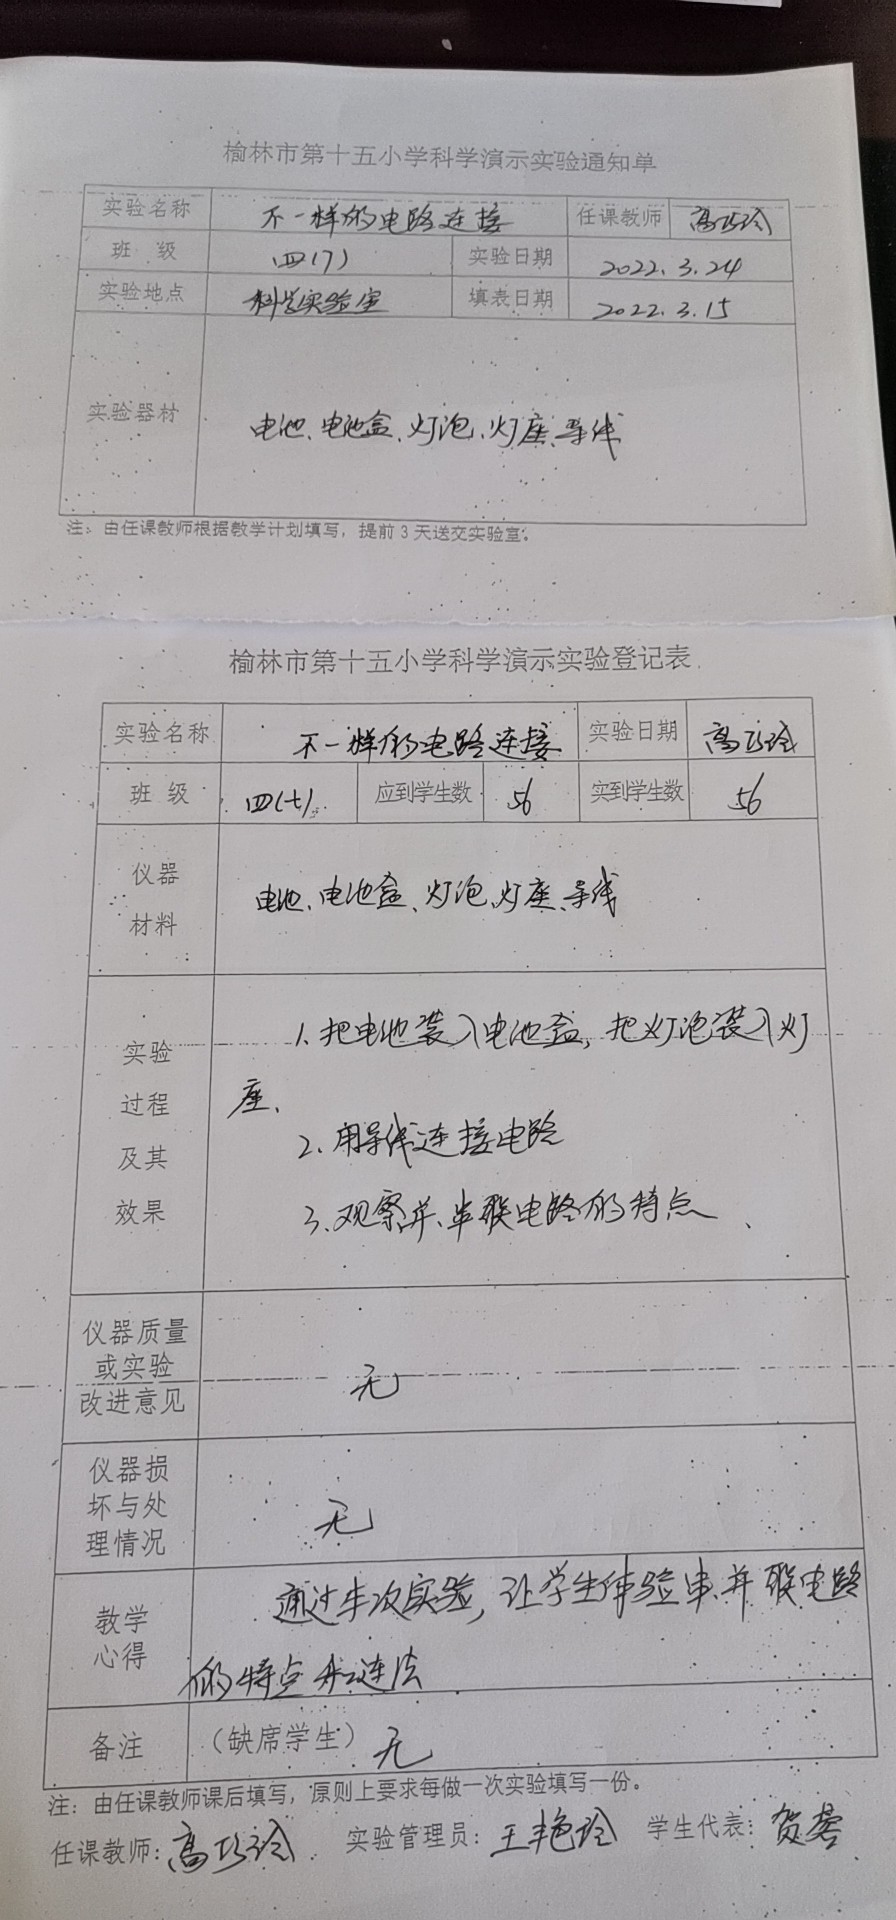 榆林市第十五小学科学演示实验通知单
实验名称 不一样的电路连接 任课教师 高巧玲
班 级 四(7) 实验日期 2022.3.24
实验地点 科学实验室 填表日期 2022.3.15
实验器材 电池、电池盒、灯泡、灯座、导线
注：由任课教师根据教学计划填写，提前3天送交实验室。
榆林市第十五小学科学演示实验登记表
实验名称 不一样的电路连接 实验日期 高巧玲
班 级 四(七) 应到学生数 56 实到学生数 56
仪器
材料
电池、电池盒、灯泡、灯座、导线
实验
过程
及其
效果
1.把电池装入电池盒，把灯泡装入灯
座、
2.用导线连接电路
3.观察并、串联电路的特点、
仪器质量
或实验
改进意见
无
仪器损
坏与处
理情况
无
教学
心得
通过本次实验，让学生体验串、并联电路
的特点和连法
备注 （缺席学生） 无
注：由任课教师课后填写，原则上要求每做一次实验填写一份。
任课教师：高巧玲 实验管理员：王艳玲 学生代表：贺